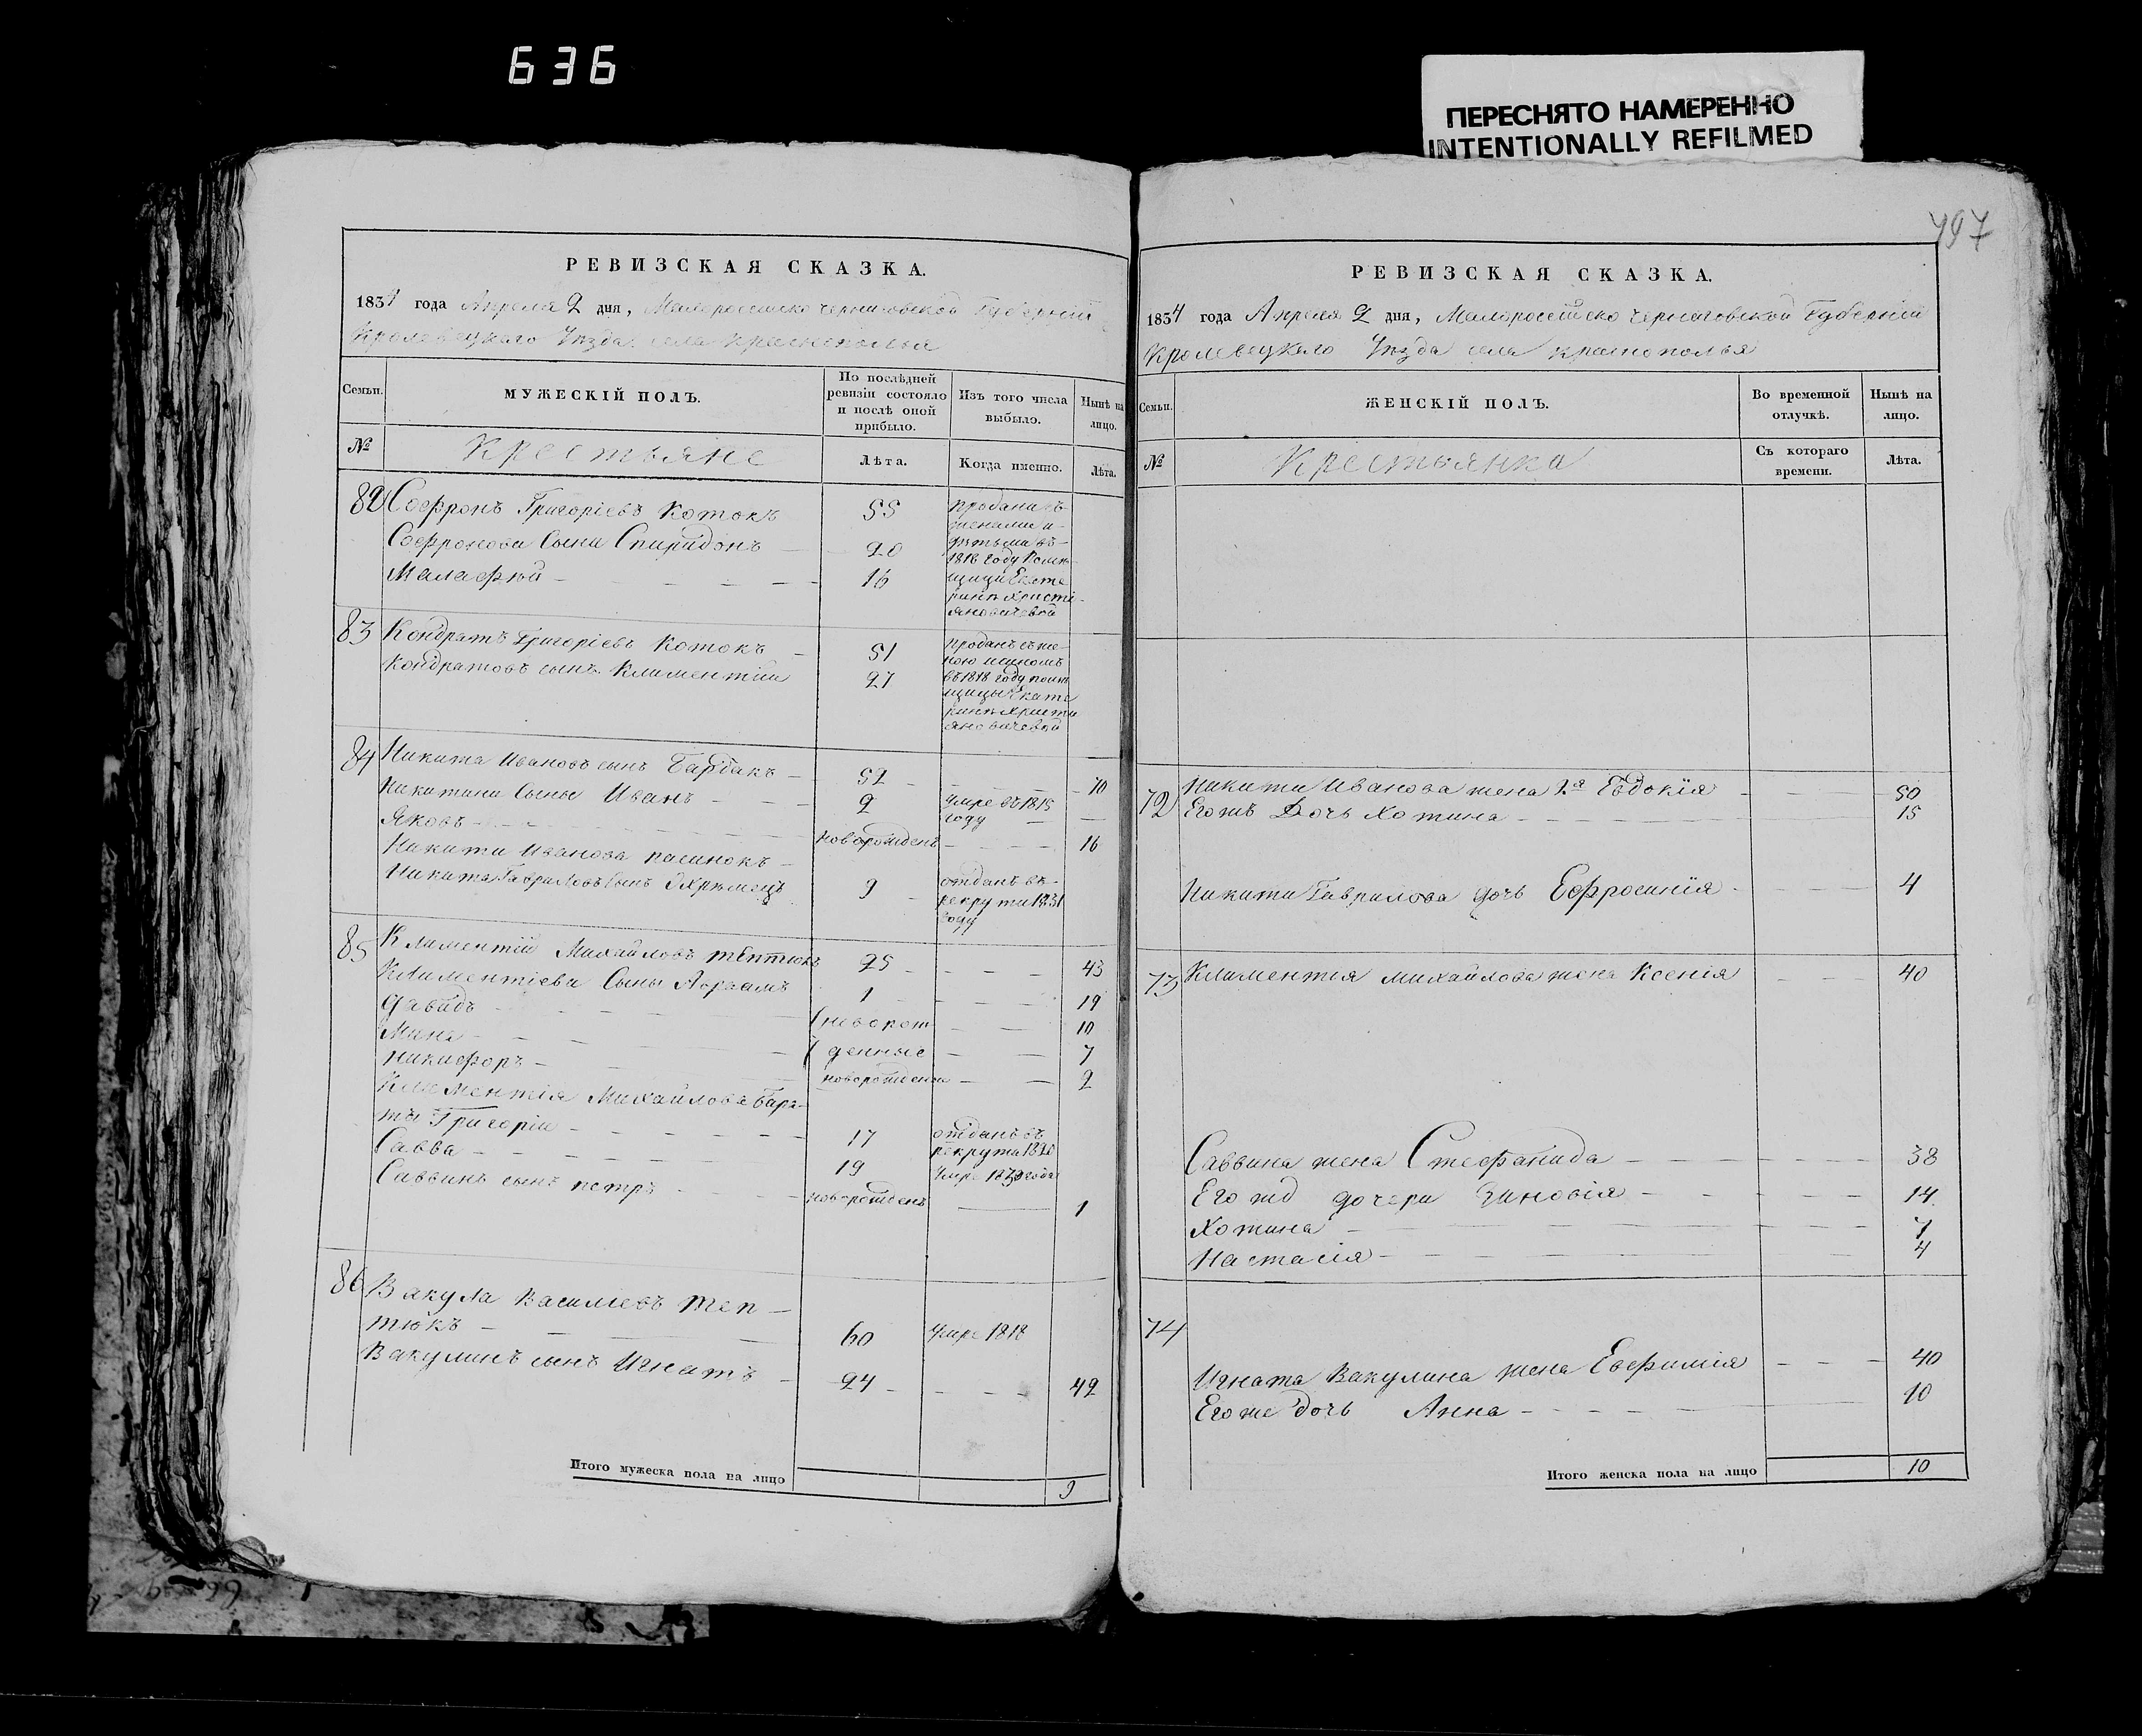 636
ПЕРЕСНЯТО НАМЕРЕННО
INTENTIONALLY REFILMED
РЕВИЗСКАЯ СКАЗКА.
1834 года Апреля 2 дня, Малороссійско Черниговской Губерніи
Кролевецкаго Уѣзда села Краснополья
Семьи.
МУЖЕСКІЙ ПОЛЪ.
По послѣдней ревизіи состояло и послѣ оной прибыло.
Изъ того числа выбыло.
Нынѣ на лицо.
№
Крестьяне
Лѣта.
Когда именно.
Лѣта.
82 Софронъ Григоріевъ Котокъ 55 проданы съ
женами и
Софронови Сыни Спиридонъ — 20 дѣтьми въ
1818 году Помѣ-
Малафѣй — 16 щици Екате
ринѣ Христі-
яновичевой
83 Кондратъ Григоріевъ Котокъ — 51 проданъ съ же-
ною и сыномъ
Кондратовъ сынъ Климентій 27 въ 1818 году помѣ
щицы Екате
ринѣ Христи
яновичевой
84 Никита Ивановъ сынъ Бардакъ — 52 — — 70
Никитини Сыны Иванъ — 2 умре въ 1815
году
Яковъ — новорожденъ — 16
Никити Иванова пасинокъ —
Никита Гавриловъ Сынъ 9 отданъ въ
рекруты 1831
году
85 Климентій Михайловъ тептюкъ 25 — 43
Климентіеви Сыны Авраамъ 1 — 19
Давидъ — (новорож — 10
Мина — ( денные — 7
Никифоръ — новорожденъ — 2
Климентія Михайлова бра-
ты Григорій — 17 отданъ въ
рекрута 1820
Савва — 19 умре 1830 года
Саввинъ сынъ петръ — новорожденъ — 1
86 Вакула Василіевъ Теп —
тюкъ — 60 умре 1818
Вакулинъ сынъ Игнатъ — 24 — 42
Итого мужеска пола на лицо 9
797
РЕВИЗСКАЯ СКАЗКА.
1834 года Апреля 2 дня, Малороссійско Черниговской Губерніи
Кролевецкаго Уѣзда села Краснополья
Семьи.
ЖЕНСКІЙ ПОЛЪ.
Во временной отлучкѣ.
Нынѣ на лицо.
№
Крестьянки
Съ котораго времени.
Лѣта.
72 Никиты Иванова жена 2я Евдокія — 50
Егожъ Дочь Хотина — 15
Никити Гаврилова дочь Ефросинія — 4
73 Климентія Михайлова жена Ксенія — 40
Саввина жена Стефанида — 38
Его жъ дочери Зиновія — 14
Хотина — 7
Настасія — 4
74
Игната Вакулина жена Евфимія — 40
Его же дочь Анна — 10
Итого женска пола на лицо 10